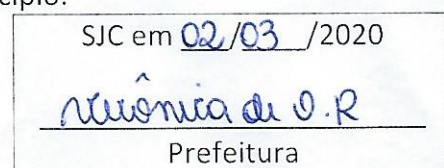 cípio.
SJC em 02/03/2020
Verônica de O.R
Prefeitura